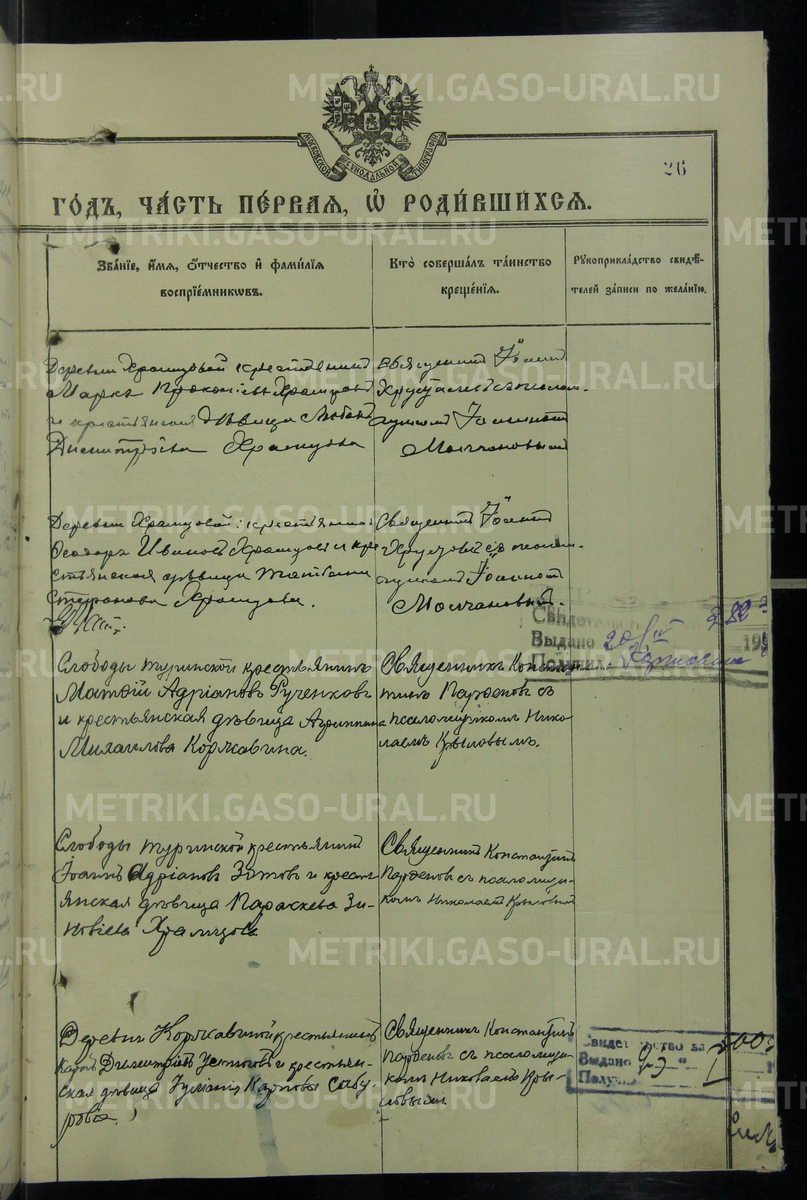 METRIKI.GASO-URAL.RU
МОСКОВСКОЙ СѴНОДАЛЬНОЙ ТИПОГРАФІИ
26
ГОДЪ, ЧАСТЬ ПЕРВАЯ, Ѡ РОДИВШИХСЯ.
Званіе, имя, отчество и фамилія воспріемниковъ.
Кто совершалъ таинство крещенія.
Рукоприкладство свидѣтелей записи по желанію.
Деревни Храмцовой крестьянинъ
Маркъ Прокопіевъ Храмцовъ
и крестьянская дѣвица Любовь
Димитріева Храмцова
Священникъ Іоаннъ
Хрусталевъ съ псалом-
щикомъ Іоанномъ
Молчановымъ
Деревни Храмцовой крестьянинъ
Ѳеодоръ Ивановъ Храмцовъ и кре
стьянская дѣвица Татіана
Стефанова Храмцова.
Священникъ Іоаннъ
съ псалом-
щикомъ Іоанномъ
Молчановымъ.
Свидет
Выдано 20
Слободы Туринской крестьянинъ
Матѳій Адріановъ Рученковъ
и крестьянская дѣвица Агриппина
Михаилова Коржавина.
Священникъ Констан
тинъ Парѳеновъ съ
псаломщикомъ Нико
лаемъ Крыловымъ.
METRIKI.GASO-URAL.RU
Слободы Туринской крестьянинъ
Іоаннъ Адріановъ Зотовъ и кресть
янская дѣвица Параскева Зи-
новіева Храмцова
Священникъ Константинъ
Парѳеновъ съ псаломщи-
комъ Николаемъ Крыловымъ
METRIKI.GASO-URAL.RU
Деревни Коржавиной крестьянинъ
Димитріевъ Устюговъ и крестьян-
ская дѣвица Іуліанія Карпова Сабу
рова.
Священникъ Константинъ
Парѳеновъ съ псаломщи-
комъ Николаемъ Кры-
ловымъ
Свидетельство за
Выдано
METRIKI.GASO-URAL.RU